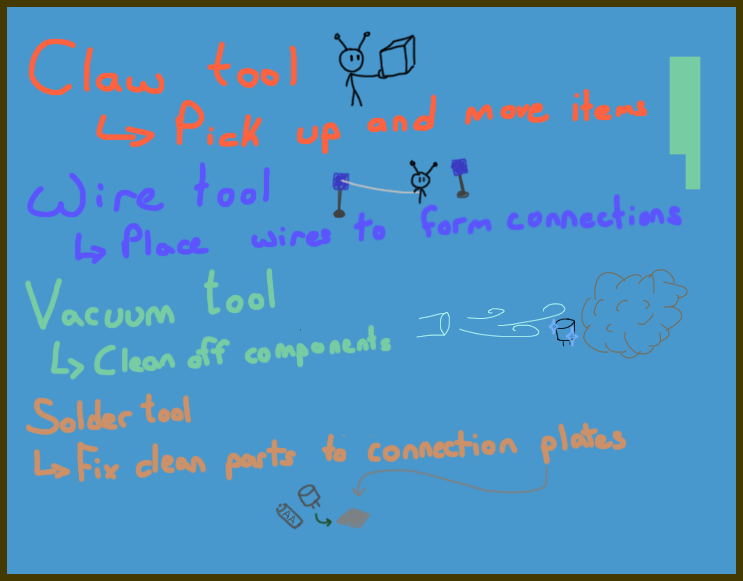 Claw tool
Pick up and move items
Wire tool
Place wires to form connections
Vacuum tool
Clean off components
Solder tool
Fix clean parts to connection plates
AA